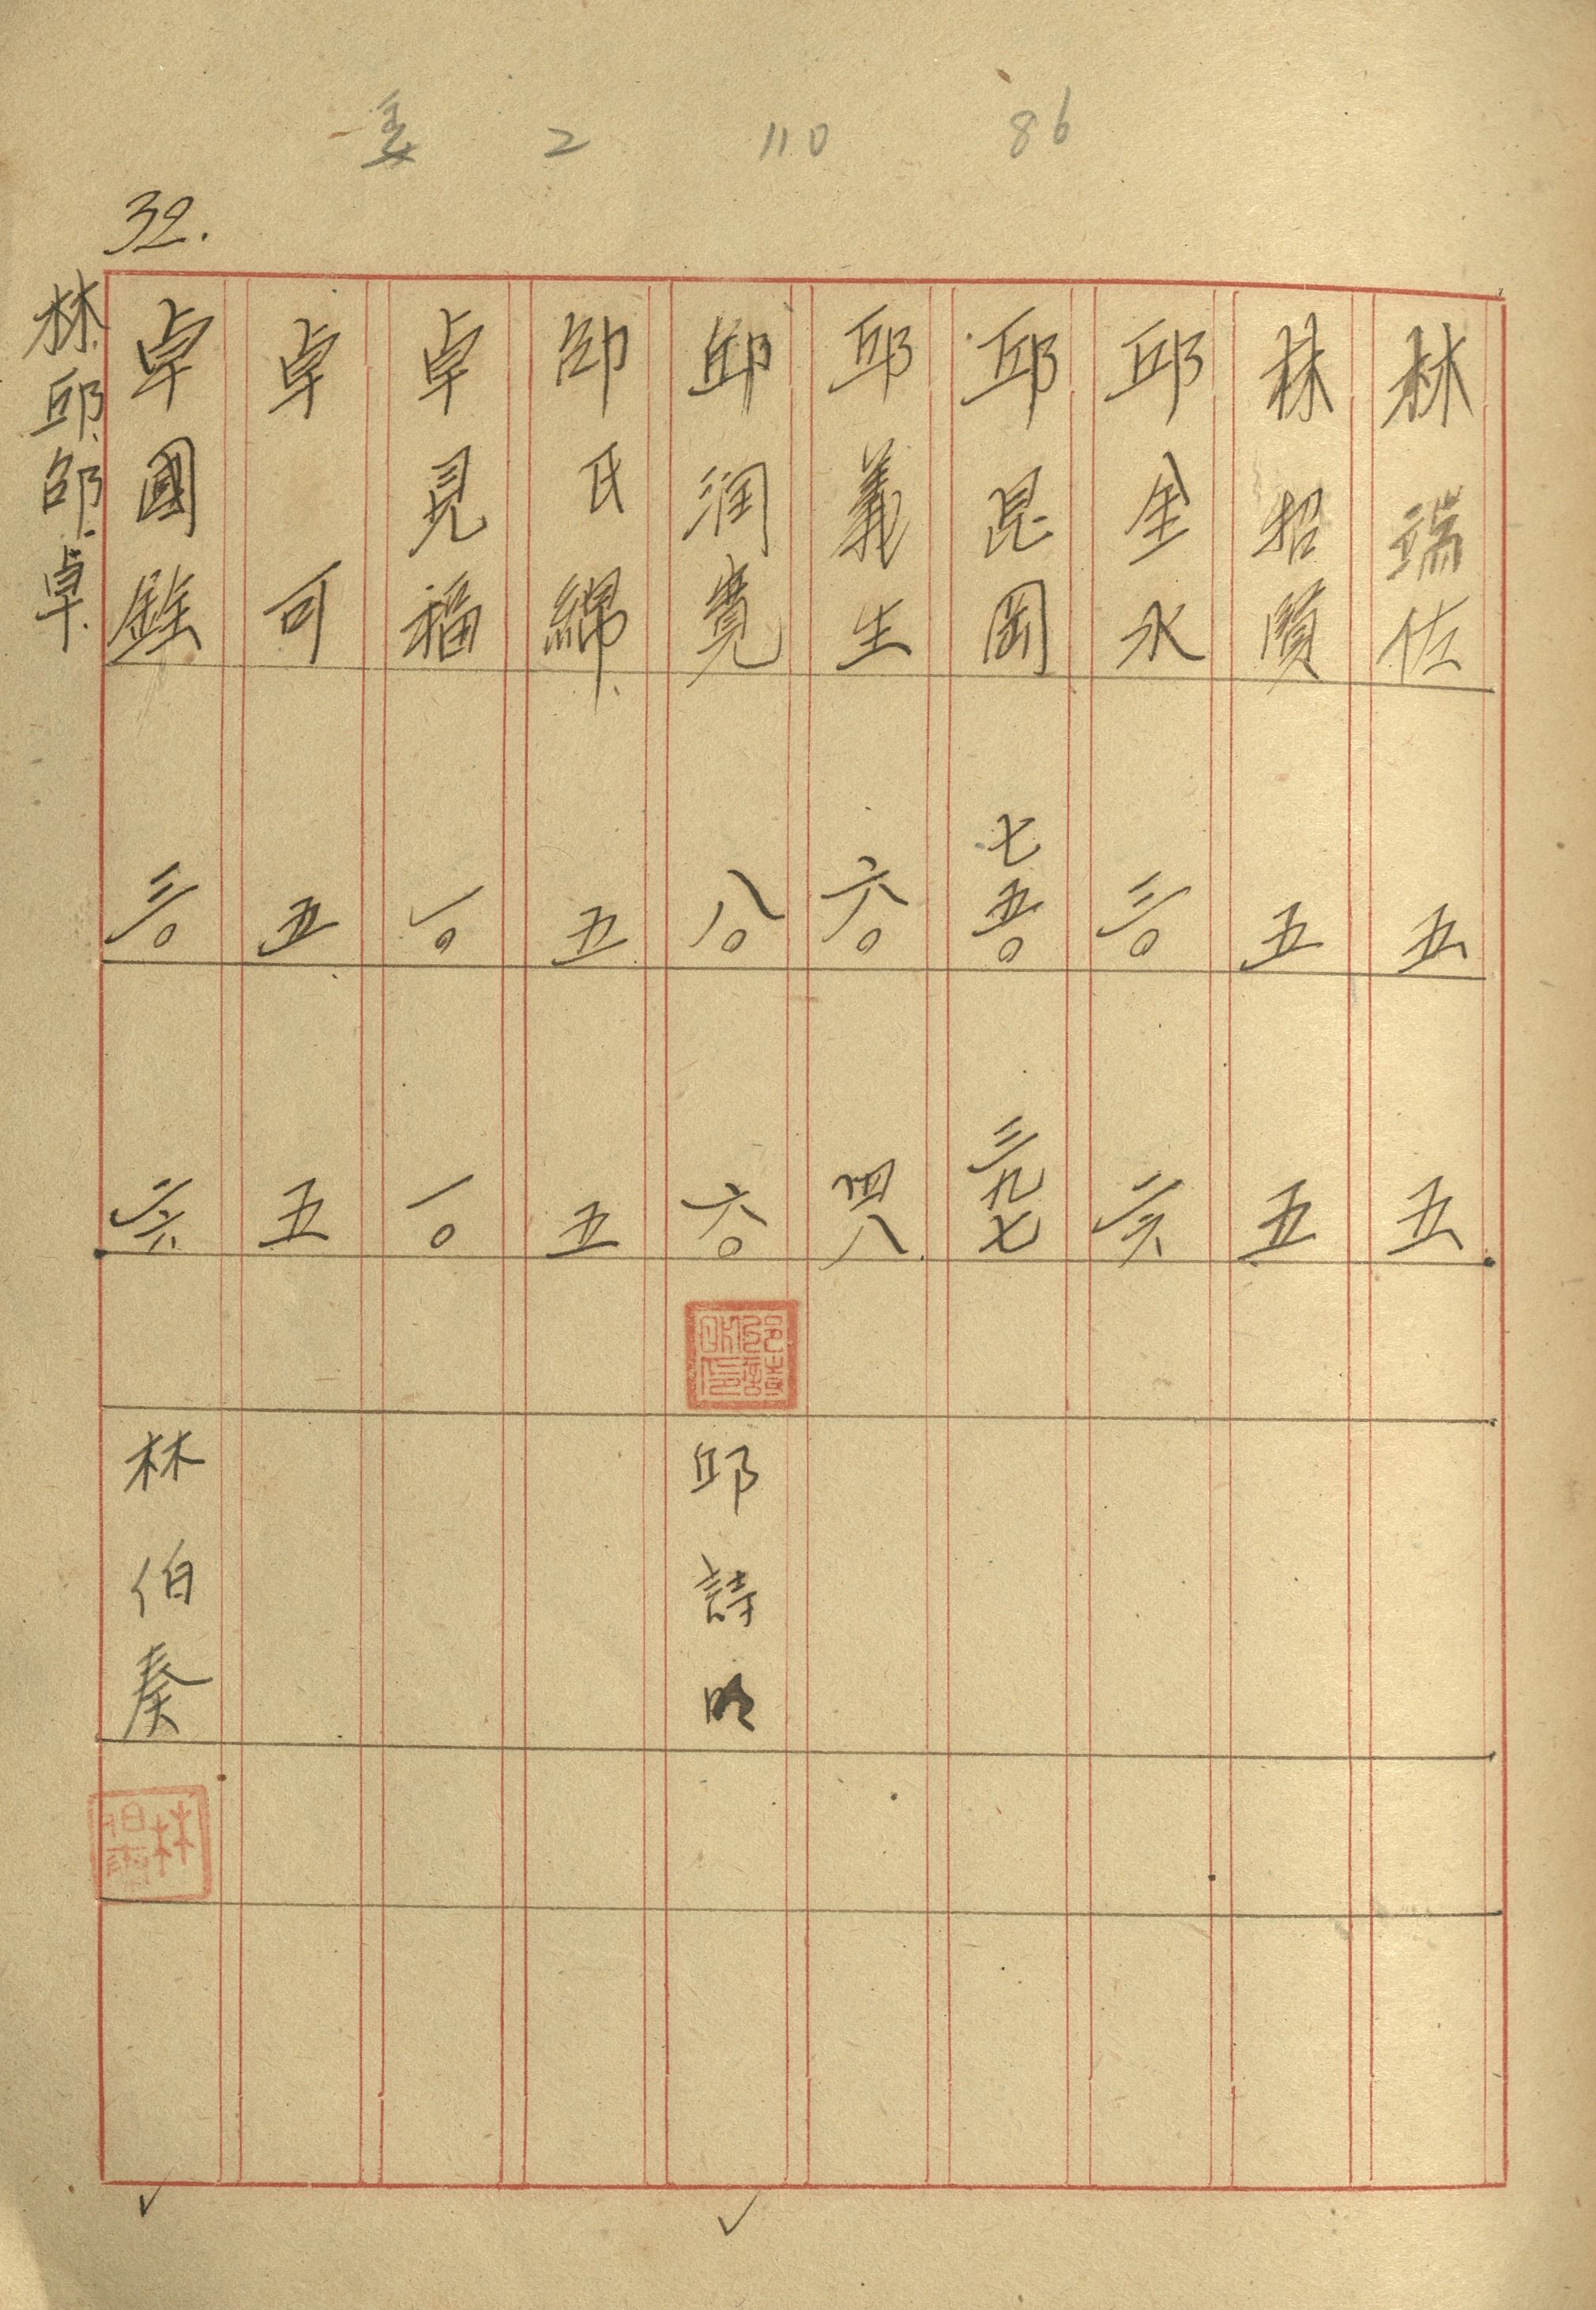 2 110 86
32.
林瑞佐 五 五
林招質 五 五
邱金水 三〇 二六
邱昆岡 七五〇 三九七
邱義生 六〇 四八
邱润寬 八〇 六〇 邱詩明
邵氏綿 五 五
卓見福 一〇 一〇
卓可 五 五
卓國銓 三〇 二六 林伯奏
林.邱.邵.卓.